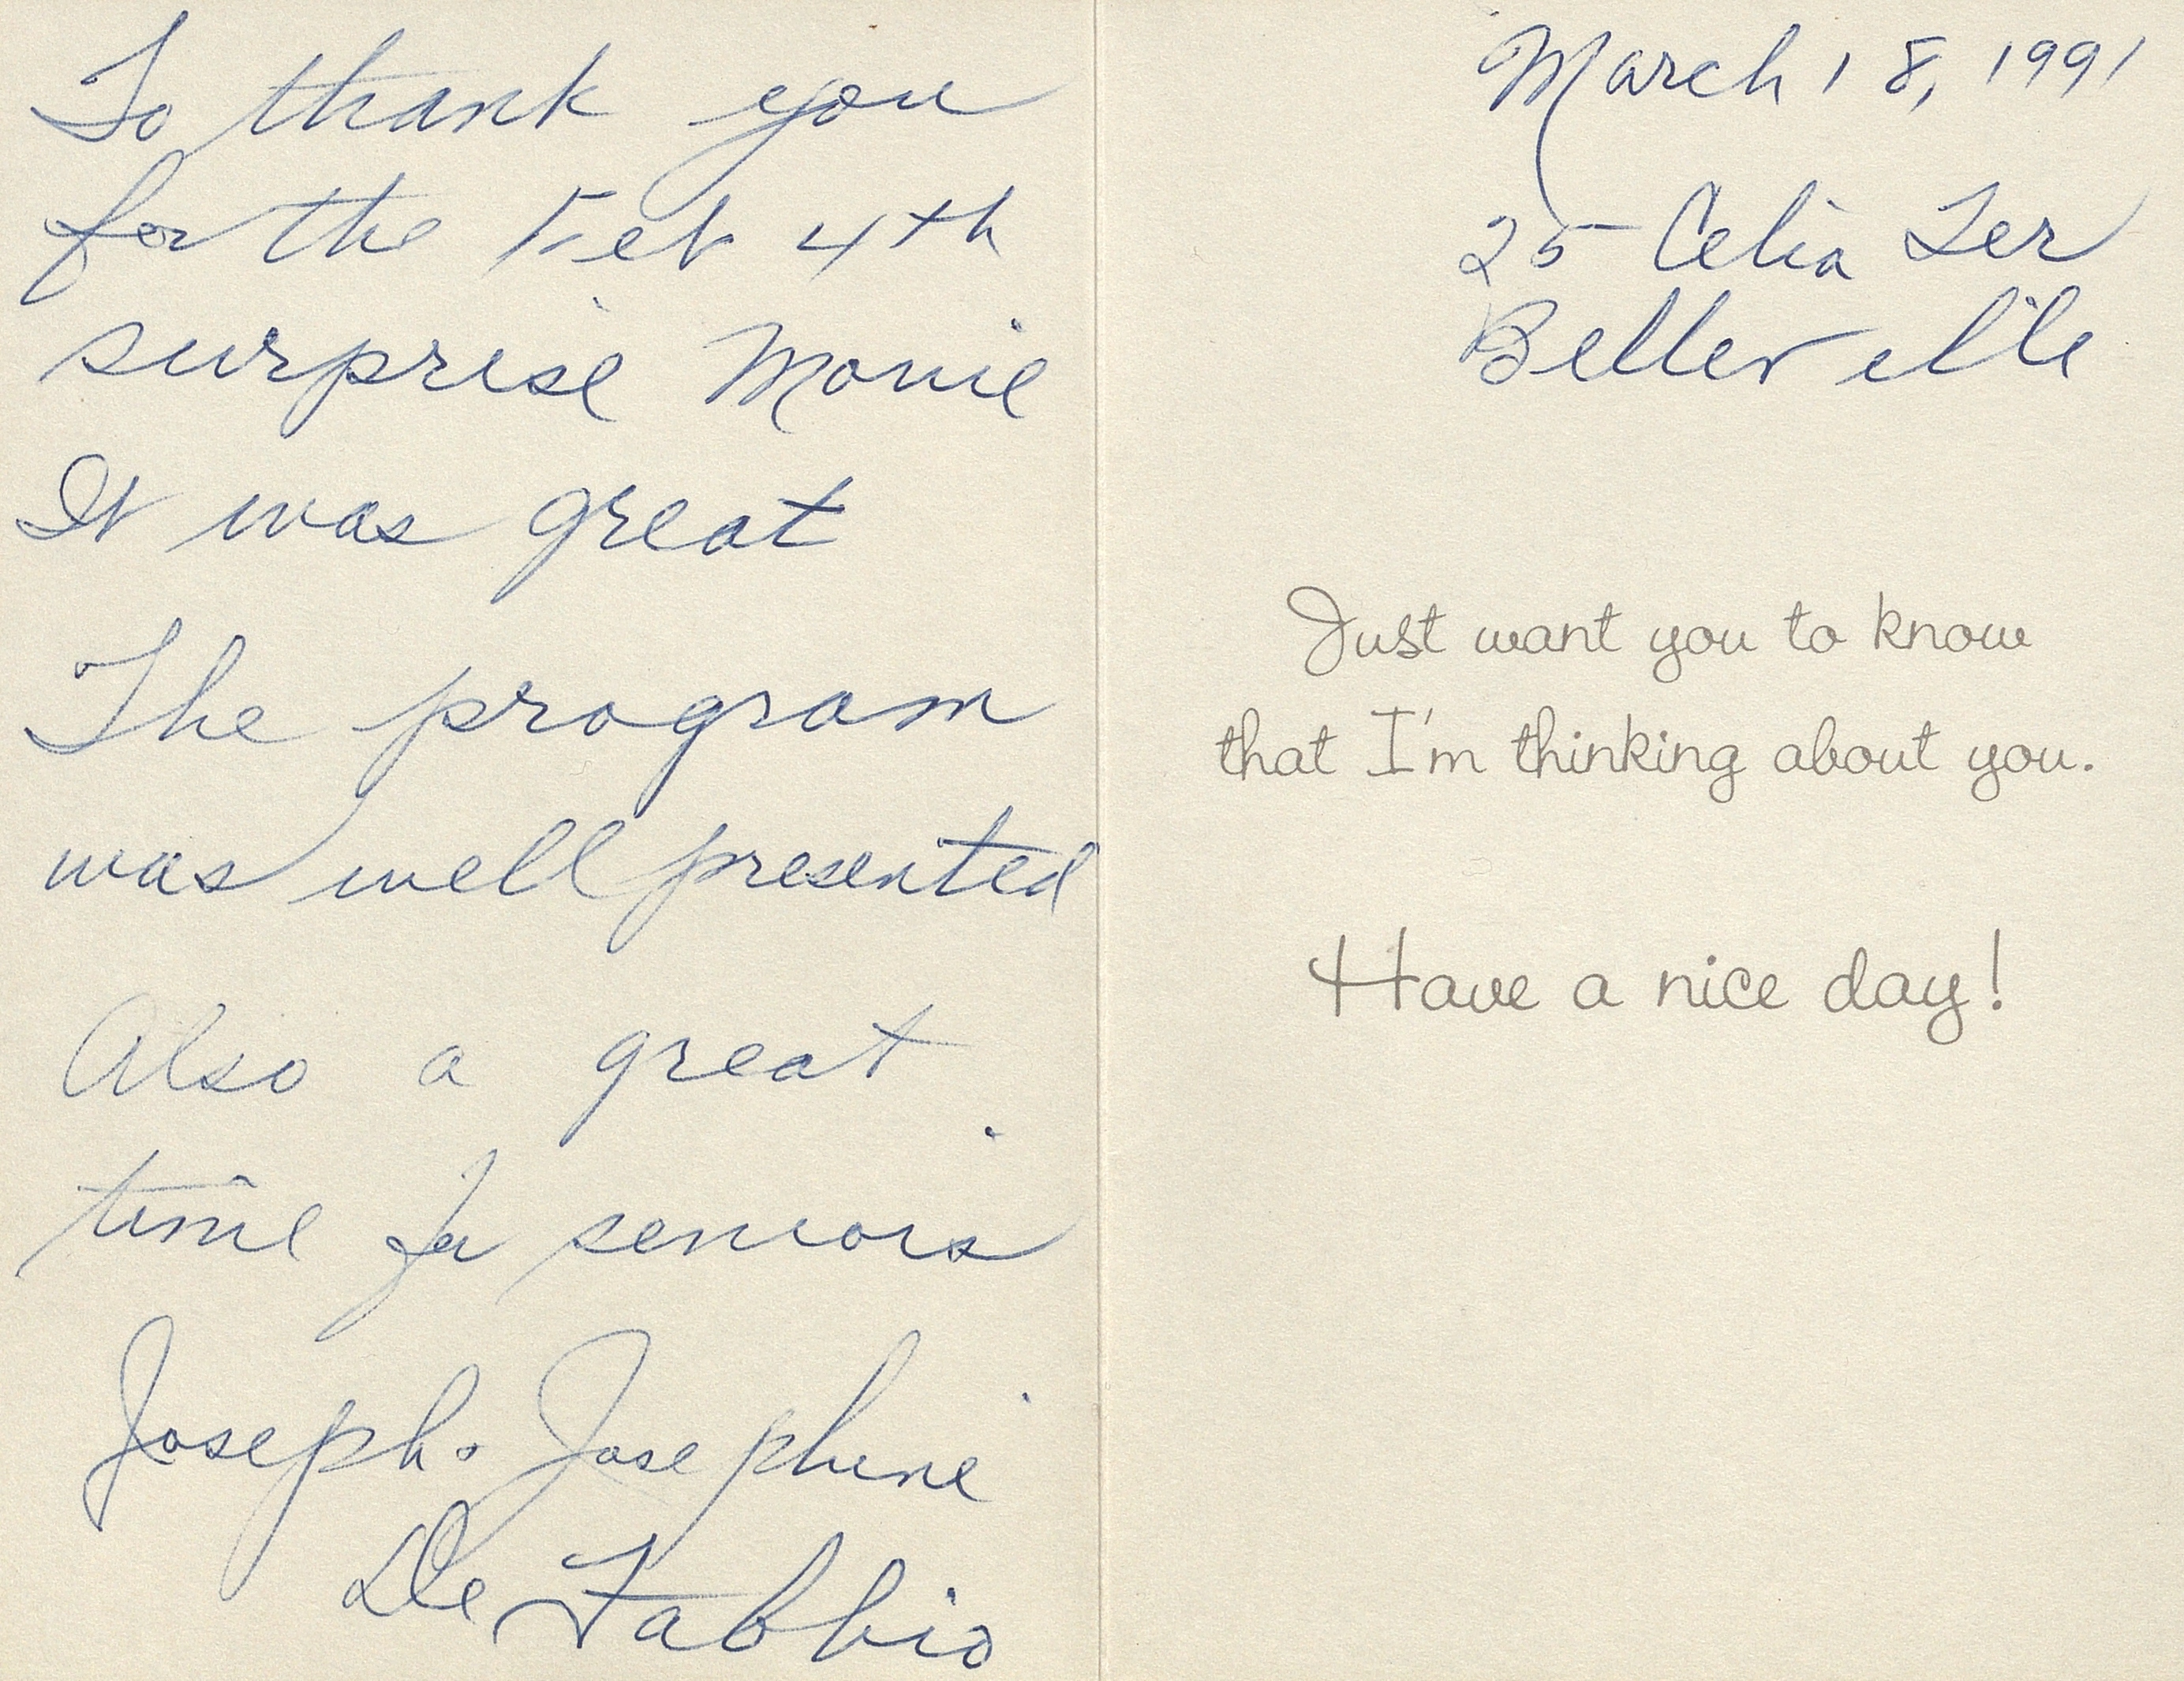 To thank you
for the Feb 4th
surprise Movie
It was great
The program
was well presented
Also a great
time for seniors
Joseph & Josephine
De Fabbio
March 18, 1991
25 Celia Ter
Belleville
Just want you to know
that I'm thinking about you.
Have a nice day!